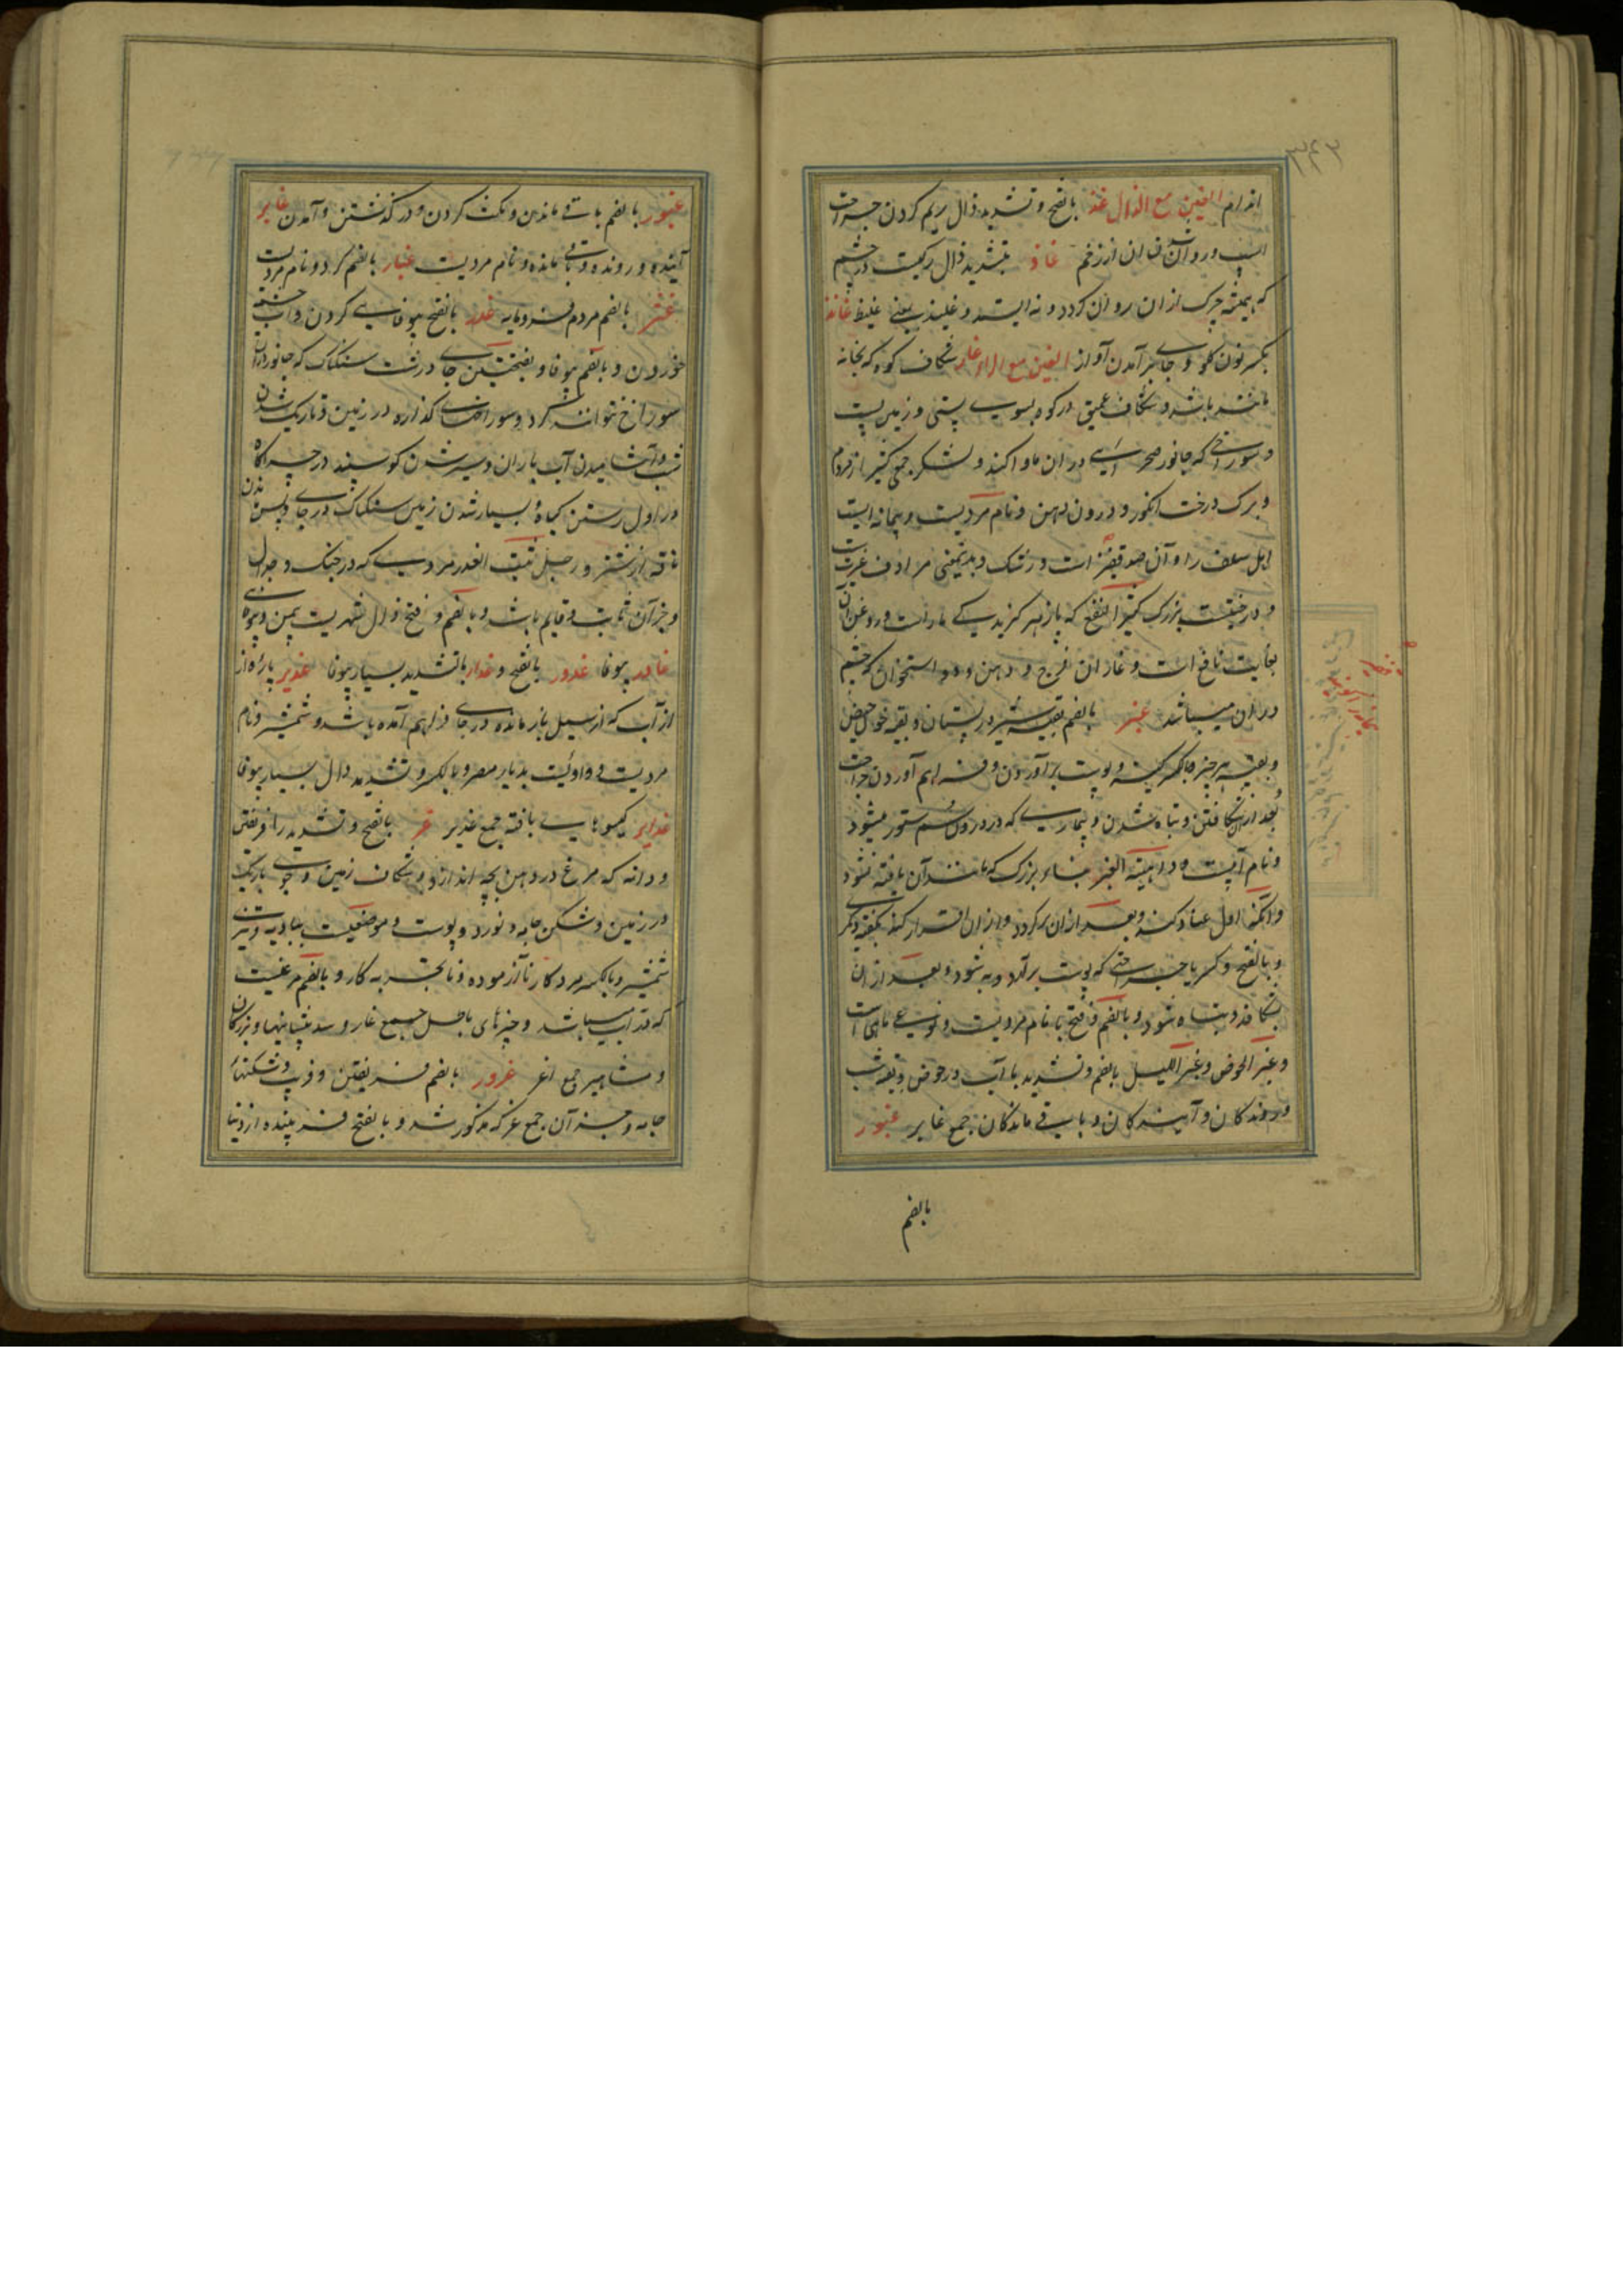 اندام الغین مع الذال غذ بالفتح و تشدید ذال ریم کردن جراحت
غاذ بتشدید ذال رگیست در چشم
که همیشه چرک از ان روان کردد و نه ایستد و غلیذ یعنی غلیظ غانذ
بکسر نون کلو و جای برآمدن آواز الغین مع الراء غار شکاف کوه که بخانه
مانند باشد و شکاف عمیق در کوه بسوی پستی و زمین پست
و سوراخی که جانور صحرایی در ان ماوا کند و لشکر و جمعی کثیر از مردم
و برک درخت انکور و درون دهن و نام مردیست و پیمانه ایست
اهل سلف را و آن صد قفیز است و رشک و بدینمعنی مرادف غیرت
و درختیست بزرک کثیر النفع که پازهر کزیدگی مار است و روغن آن
بغایت نافع است و غاران فرج و دهن و دو استخوان که چشم
در ان میباشد غبر بالضم بقیه شیر در پستان و بقیه خون حیض
و بقیه هر چیز و بالکسر کینه و پوست برآوردن و فراهم آوردن جراحت
بعد ازان شکافتن و تباه شدن و بیماریی که در درون سم ستور میشود
و نام آبیست و داهیة الغبر بلاء بزرک که مانند آن یافته نشود
وانکه اول عناد کند و بعد ازان برکردد و ازان اقرار کند بکفته دیکر
و بالفتح و کسر با جراحتی که پوست برآرد و به شود و بعد ازان
بشکافد و تباه شود و بالضم و فتح با نام مردیست و نوعی ماهی است
و غبر الحوض و غبر اللیل بالضم و تشدید با آب در حوض و بقیه شب
و روندکان و آیندکان و باقی ماندکان جمع غابر غبور
بالضم
غبور بالضم باقی ماندن و مکث کردن و درکذشتن و آمدن غابر
آینده و رونده و باقی مانده و نام مردیست غبار بالضم کرد و نام مردیست
غثر بالضم مردم فرومایه غدر بالفتح بیوفایی کردن و آب
خوردن و بالضم بیوفا و بفتحتین جای درشت سنکناک که جانور دران
سوراخ نتواند کرد و سوراخهای کذاره در زمین و تاریک شدن
شب و آشامیدن آب باران و سیر شدن کوسپند در چراکاه
در اول رستن کیاه و بسیار شدن زمین سنکناک در جای و پس ماندن
ناقه از شتر و رجل ثبت الغدر مردی که در جنک و جدل
و جز آن ثابت و قایم باشد و بالضم و فتح دال شهریست بیمن
غادر بیوفا غدور بالفتح و غدار بالتشدید بسیار بیوفا غدیر پاره از
از آب که از سیل باز مانده در جای فراهم آمده باشد و شمشیر و نام
مردیست و وادئیست بدیار مضر و بالکسر و تشدید دال بسیار بیوفا
غدایر کیسوهای بافته جمع غدیر غر بالفتح و تشدید را فریفتن
و دانه که مرغ در دهن بچه اندازد و شکاف زمین و جوی باریک
در زمین و شکن جامه و نورد و پوست و موضعیست ببادیه و تیزی
شمشیر و بالکسر مرد کار ناآزموده و ناتجربه کار و بالضم مرغیست
که در آب میباشد و چیزهای باحسن جمع غار و سفید پیشانیها و بزرکان
و مشاهیر جمع اغر غرور بالضم فریفتن و فریب و شکنهاء
جامه و جز آن جمع غر که مذکور شد و بالفتح فریبنده از دنیا